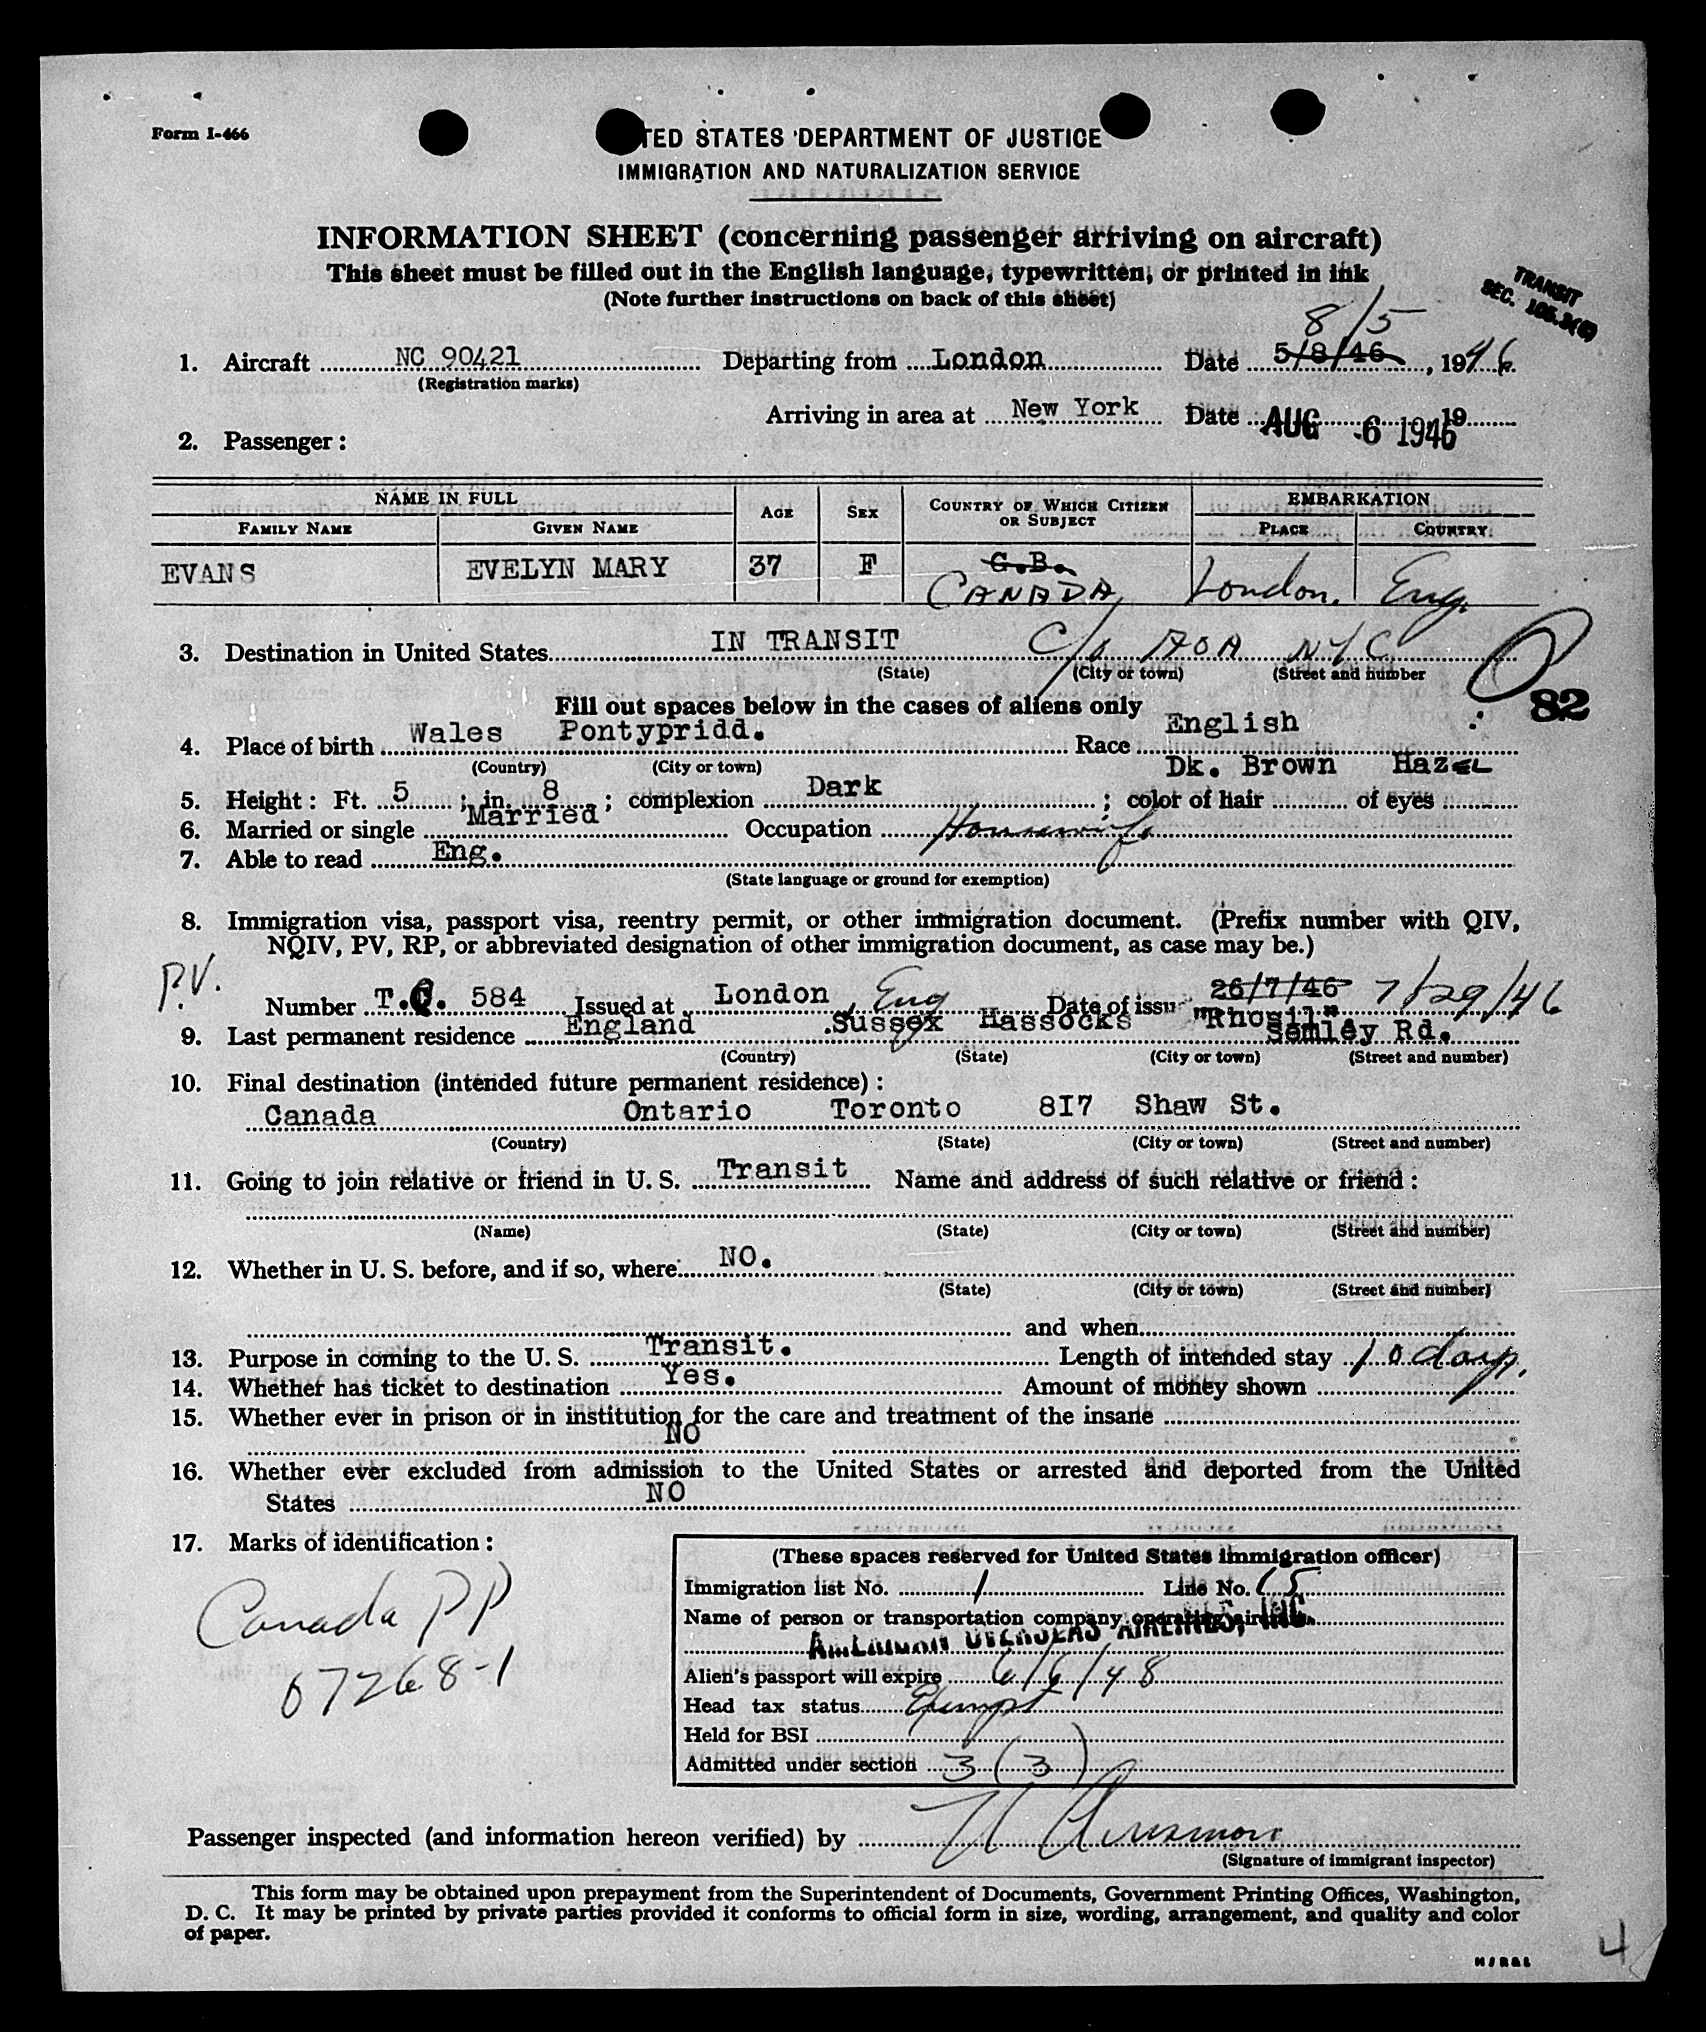 Form I-466
TED STATES DEPARTMENT OF JUSTICE
IMMIGRATION AND NATURALIZATION SERVICE
INFORMATION SHEET (concerning passenger arriving on aircraft)
This sheet must be filled out in the English language, typewritten, or printed in ink
(Note further instructions on back of this sheet)
TRANSIT
SEC. 105.3(
8/5
1. Aircraft NC 90421 Departing from London Date 5/8/46 , 1946.
(Registration marks)
Arriving in area at New York Date AUG 6 1946 , 19
2. Passenger:
NAME IN FULL AGE SEX COUNTRY OF WHICH CITIZEN OR SUBJECT EMBARKATION
FAMILY NAME GIVEN NAME PLACE COUNTRY
EVANS EVELYN MARY 37 F G.B. London, Eng.
CANADA
3. Destination in United States IN TRANSIT C/o AOA NYC
(State) (City or town) (Street and number
82
Fill out spaces below in the cases of aliens only
4. Place of birth Wales Pontypridd. Race English
(Country) (City or town)
Dk. Brown Hazel
5. Height: Ft. 5 ; in. 8 ; complexion Dark ; color of hair of eyes
6. Married or single Married Occupation Housewife
7. Able to read Eng.
(State language or ground for exemption)
8. Immigration visa, passport visa, reentry permit, or other immigration document. (Prefix number with QIV,
NQIV, PV, RP, or abbreviated designation of other immigration document, as case may be.)
P.V.
Number T.C. 584 Issued at London, Eng Date of issu 26/7/46 7/29/46
9. Last permanent residence England Sussex Hassocks "Rhosil" Semley Rd.
(Country) (State) (City or town) (Street and number)
10. Final destination (intended future permanent residence):
Canada Ontario Toronto 8I7 Shaw St.
(Country) (State) (City or town) (Street and number)
11. Going to join relative or friend in U. S. Transit Name and address of such relative or friend:
(Name) (State) (City or town) (Street and number)
12. Whether in U. S. before, and if so, where NO.
(State) (City or town) (Street and number)
and when
13. Purpose in coming to the U. S. Transit. Length of intended stay 10 days.
14. Whether has ticket to destination Yes. Amount of money shown
15. Whether ever in prison or in institution for the care and treatment of the insane
NO
16. Whether ever excluded from admission to the United States or arrested and deported from the United
States NO
17. Marks of identification:
Canada PP
67268-1
(These spaces reserved for United States immigration officer)
Immigration list No. 1 Line No. 15
Name of person or transportation company operating aircraft
AMERICAN OVERSEAS AIRLINES, INC.
Alien's passport will expire 6/6/48
Head tax status Exempt
Held for BSI
Admitted under section 3(3)
Passenger inspected (and information hereon verified) by
(Signature of immigrant inspector)
This form may be obtained upon prepayment from the Superintendent of Documents, Government Printing Offices, Washington,
D. C. It may be printed by private parties provided it conforms to official form in size, wording, arrangement, and quality and color
of paper.
4